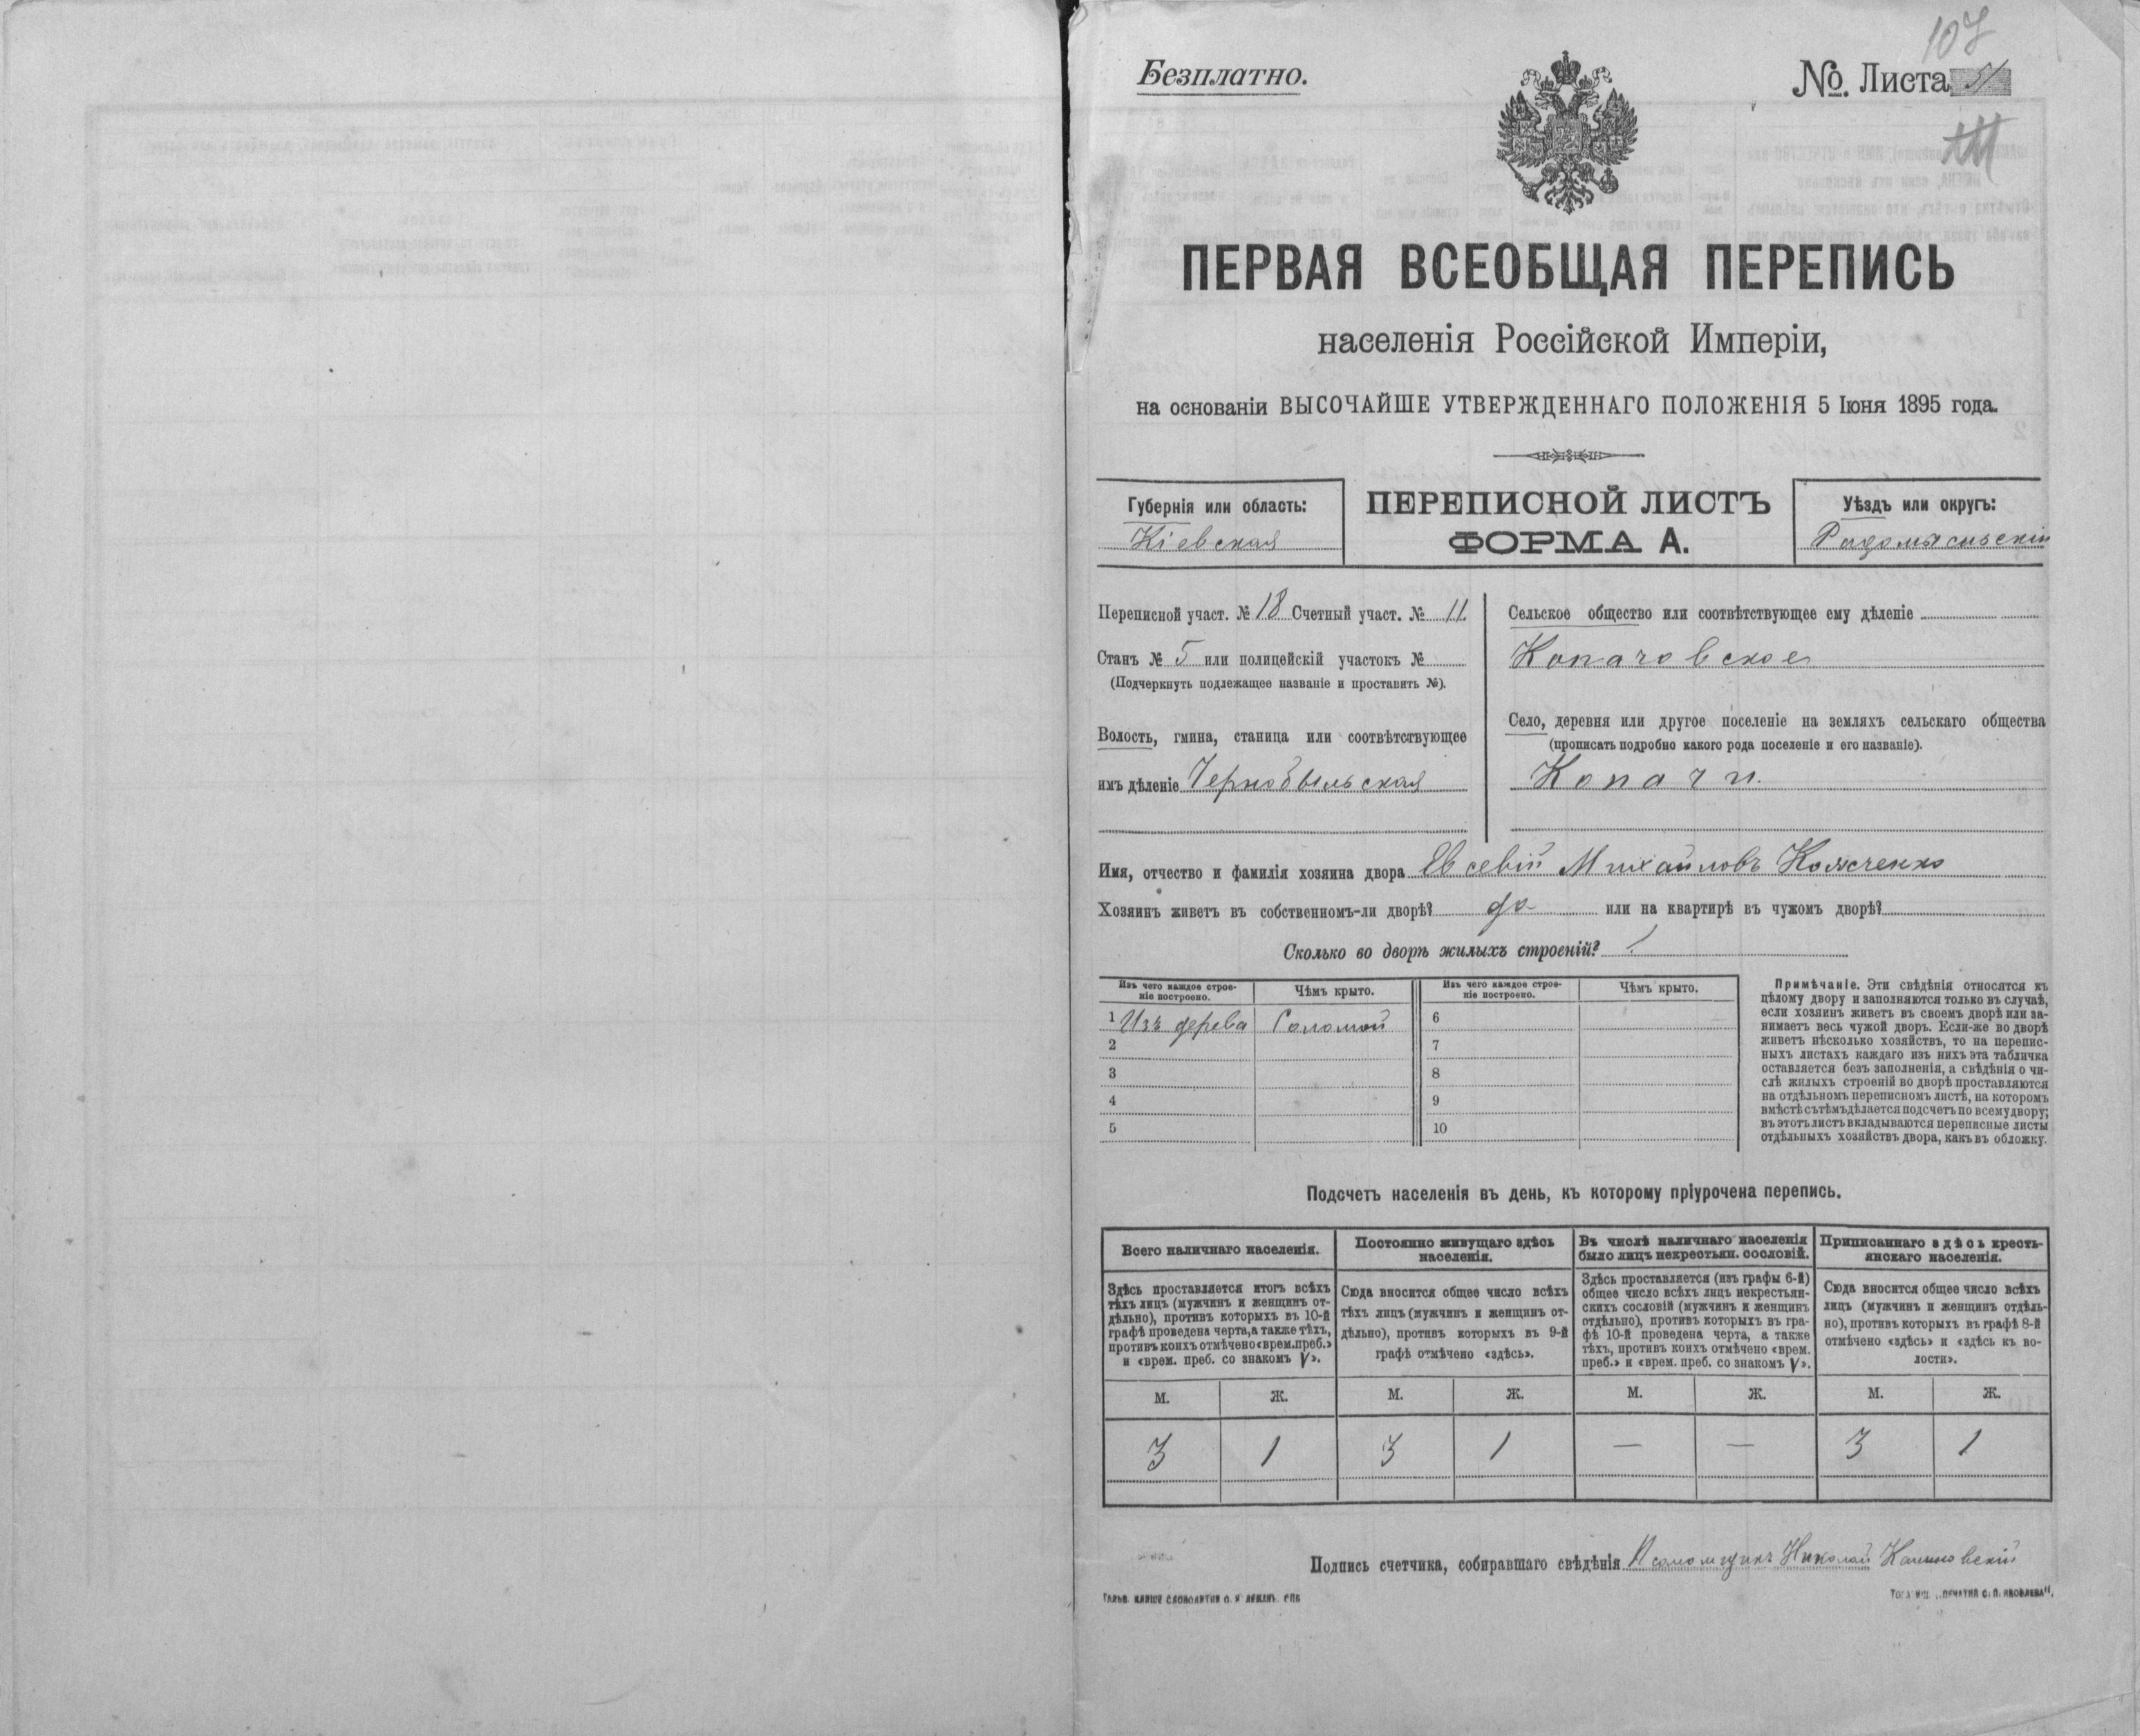 107
Безплатно.
№. Листа 51
ПЕРВАЯ ВСЕОБЩАЯ ПЕРЕПИСЬ
населенія Россійской Имперіи,
на основаніи ВЫСОЧАЙШЕ УТВЕРЖДЕННАГО ПОЛОЖЕНІЯ 5 Іюня 1895 года.
Губернія или область:
Кіевская
ПЕРЕПИСНОЙ ЛИСТЪ
ФОРМА А.
Уѣздъ или округъ:
Радомысльскій
Переписной участ. № 18 Счетный участ. № 11.
Станъ № 5 или полицейскій участокъ №
(Подчеркнуть подлежащее названіе и проставить №).
Волость, гмина, станица или соотвѣтствующее
имъ дѣленіе Чернобыльская
Сельское общество или соотвѣтствующее ему дѣленіе
Копачовское
Село, деревня или другое поселеніе на земляхъ сельскаго общества
(прописать подробно какого рода поселеніе и его названіе).
Копачи.
Имя, отчество и фамилія хозяина двора Евсевій Михайловъ
Хозяинъ живетъ въ собственномъ-ли дворѣ? да или на квартирѣ въ чужомъ дворѣ?
Сколько во дворѣ жилыхъ строеній? 1
Изъ чего каждое строе-
ніе построено.
Чѣмъ крыто.
Изъ чего каждое строе-
ніе построено.
Чѣмъ крыто.
1 Изъ дерева Соломой 6
2 7
3 8
4 9
5 10
Примѣчаніе. Эти свѣдѣнія относятся къ
цѣлому двору и заполняются только въ случаѣ,
если хозяинъ живетъ въ своемъ дворѣ или за-
нимаетъ весь чужой дворъ. Если-же во дворѣ
живетъ нѣсколько хозяйствъ, то на перепис-
ныхъ листахъ каждаго изъ нихъ эта табличка
оставляется безъ заполненія, а свѣдѣнія о чи-
слѣ жилыхъ строеній во дворѣ проставляются
на отдѣльномъ переписномъ листѣ, на которомъ
вмѣстѣ съ тѣмъ дѣлается подсчетъ по всему двору;
въ этотъ листъ вкладываются переписные листы
отдѣльныхъ хозяйствъ двора, какъ въ обложку.
Подсчетъ населенія въ день, къ которому пріурочена перепись.
Всего наличнаго населенія.
Здѣсь проставляется итогъ всѣхъ
тѣхъ лицъ (мужчинъ и женщинъ от-
дѣльно), противъ которыхъ въ 10-й
графѣ проведена черта, а также тѣхъ,
противъ коихъ отмѣчено «врем. преб.»
и «врем. преб. со знакомъ V».
Постоянно живущаго здѣсь
населенія.
Сюда вносится общее число всѣхъ
тѣхъ лицъ (мужчинъ и женщинъ от-
дѣльно), противъ которыхъ въ 9-й
графѣ отмѣчено «здѣсь».
Въ числѣ наличнаго населенія
было лицъ некрестьян. сословій.
Здѣсь проставляется (изъ графы 6-й)
общее число всѣхъ лицъ некрестьян-
скихъ сословій (мужчинъ и женщинъ
отдѣльно), противъ которыхъ въ гра-
фѣ 10-й проведена черта, а также
тѣхъ, противъ коихъ отмѣчено «врем.
преб.» и «врем. преб. со знакомъ V».
Приписаннаго здѣсь кресть-
янскаго населенія.
Сюда вносится общее число всѣхъ
лицъ (мужчинъ и женщинъ отдѣль-
но), противъ которыхъ въ графѣ 8-й
отмѣчено «здѣсь» и «здѣсь къ во-
лости».
М. Ж. М. Ж. М. Ж. М. Ж.
3 1 3 1 — — 3 1
Подпись счетчика, собиравшаго свѣдѣнія Псаломщикъ Николай Калиновскій